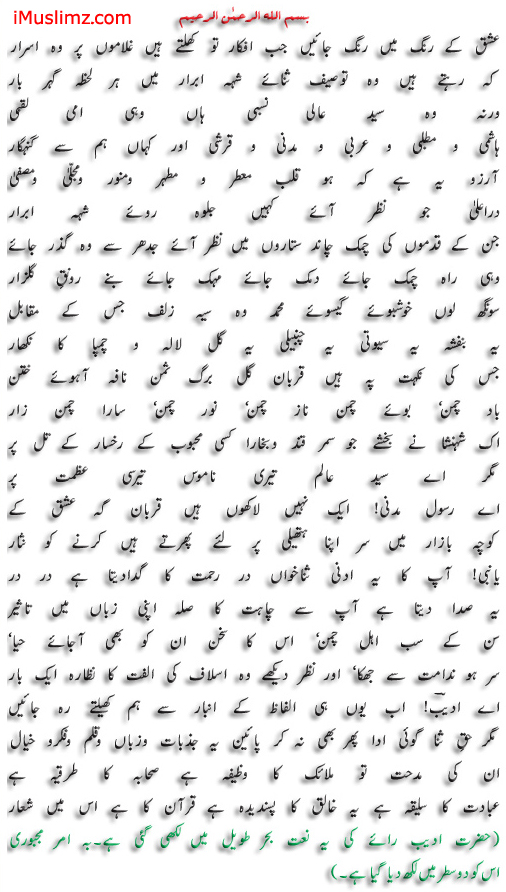 iMuslimz.com
بسم الله الرحمٰن الرحیم
عشق کے رنگ میں رنگ جائیں جب افکار تو کھلتے ہیں غلاموں پر وہ اسرار
کہ رہتے ہیں وہ توصیف ثنائے شہہ ابرار میں ہر لحظہ گہر بار
ورنہ وہ سید عالی نسبی ہاں وہی امی لقمی
ہاشمی و مطلبی و عربی و مدنی و قرشی اور کہاں ہم سے گنہگار
آرزو یہ ہے کہ ہو قلب معطر و مطہر ومنور ومجلّٰی ومصفیٰ
دراعلیٰ جو نظر آئے کہیں جلوہ روئے شہہ ابرار
جن کے قدموں کی چمک چاند ستاروں میں نظر آئے جدھر سے وہ گذر جائے
وہی راہ چمک جائے دمک جائے مہک جائے بنے رونقِ گلزار
سونگھ لوں خوشبوئے گیسوئے محمد وہ سیہ زلف جس کے مقابل
یہ بنفشہ یہ سیوتی یہ چنبیلی یہ گل لالہ و چمپا کا نکھار
جس کی نکہت پہ ہیں قربان گل برگ سمن نافہ آہوئے ختن
باد چمن، بوئے چمن ناز چمن، نور چمن، سارا چمن زار
اک شہنشا نے بخشے جو سمر قند وبخارا کسی محبوب کے رخسار کے تل پر
مگر اے سید عالم تیری ناموس تیری عظمت پر
اے رسول مدنی! ایک نہیں لاکھوں ہیں قربان گہہ عشق کے
کوچہ بازار میں سر اپنا ہتھیلی پر لئے پھرتے ہیں کرنے کو نثار
یانبی! آپ کا یہ ادنی ثناخواں در رحمت کا گدادیتا ہے در در
یہ صدا دیتا ہے آپ سے چاہت کا صلہ اپنی زباں میں تاثیر
سن کے سب اہل چمن، اس کا سخن ان کو بھی آجائے حیا،
سر ہو ندامت سے جھکا، اور نظر دیکھے وہ اسلاف کی الفت کا نظارہ ایک بار
اے ادیبؔ! اب یوں ہی الفاظ کے انبار سے ہم کھیلتے رہ جائیں
مگر حقِ ثنا گوئی ادا پھر بھی نہ کر پائیں یہ جذبات وزباں وقلم وفکرو خیال
ان کی مدحت تو ملائک کا وظیفہ ہے صحابہ کا طرقیہ ہے
عبادت کا سلیقہ ہے یہ خالق کا پسندیدہ ہے قرآن کا ہے اس میں شعار
(حضرت ادیب رائے کی یہ نعت بحر طویل میں لکھی گئی ہے۔بہ امر مجبوری
اس کو دو سطر میں لکھ دیا گیا ہے۔)